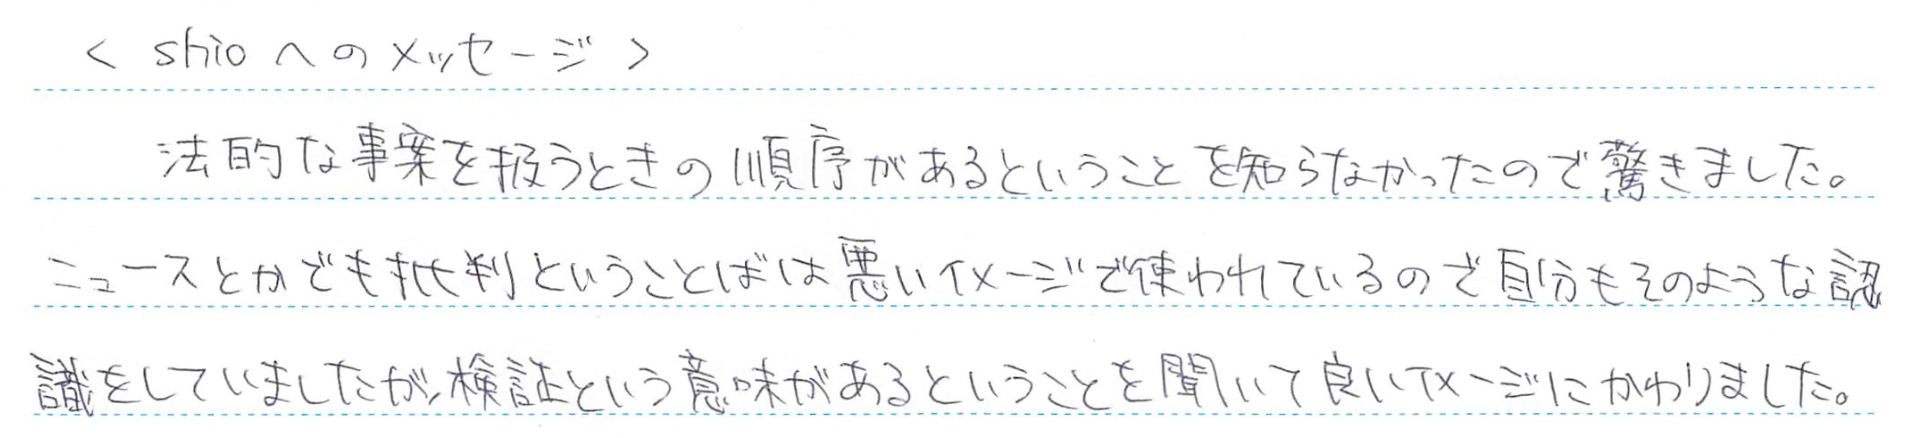 < shioへのメッセージ >
法的な事案を扱うときの順序があるということを知らなかったので驚きました。
ニュースとかでも批判ということばは悪いイメージで使われているので自分もそのような認
識をしていましたが、検証という意味があるということを聞いて良いイメージにかわりました。